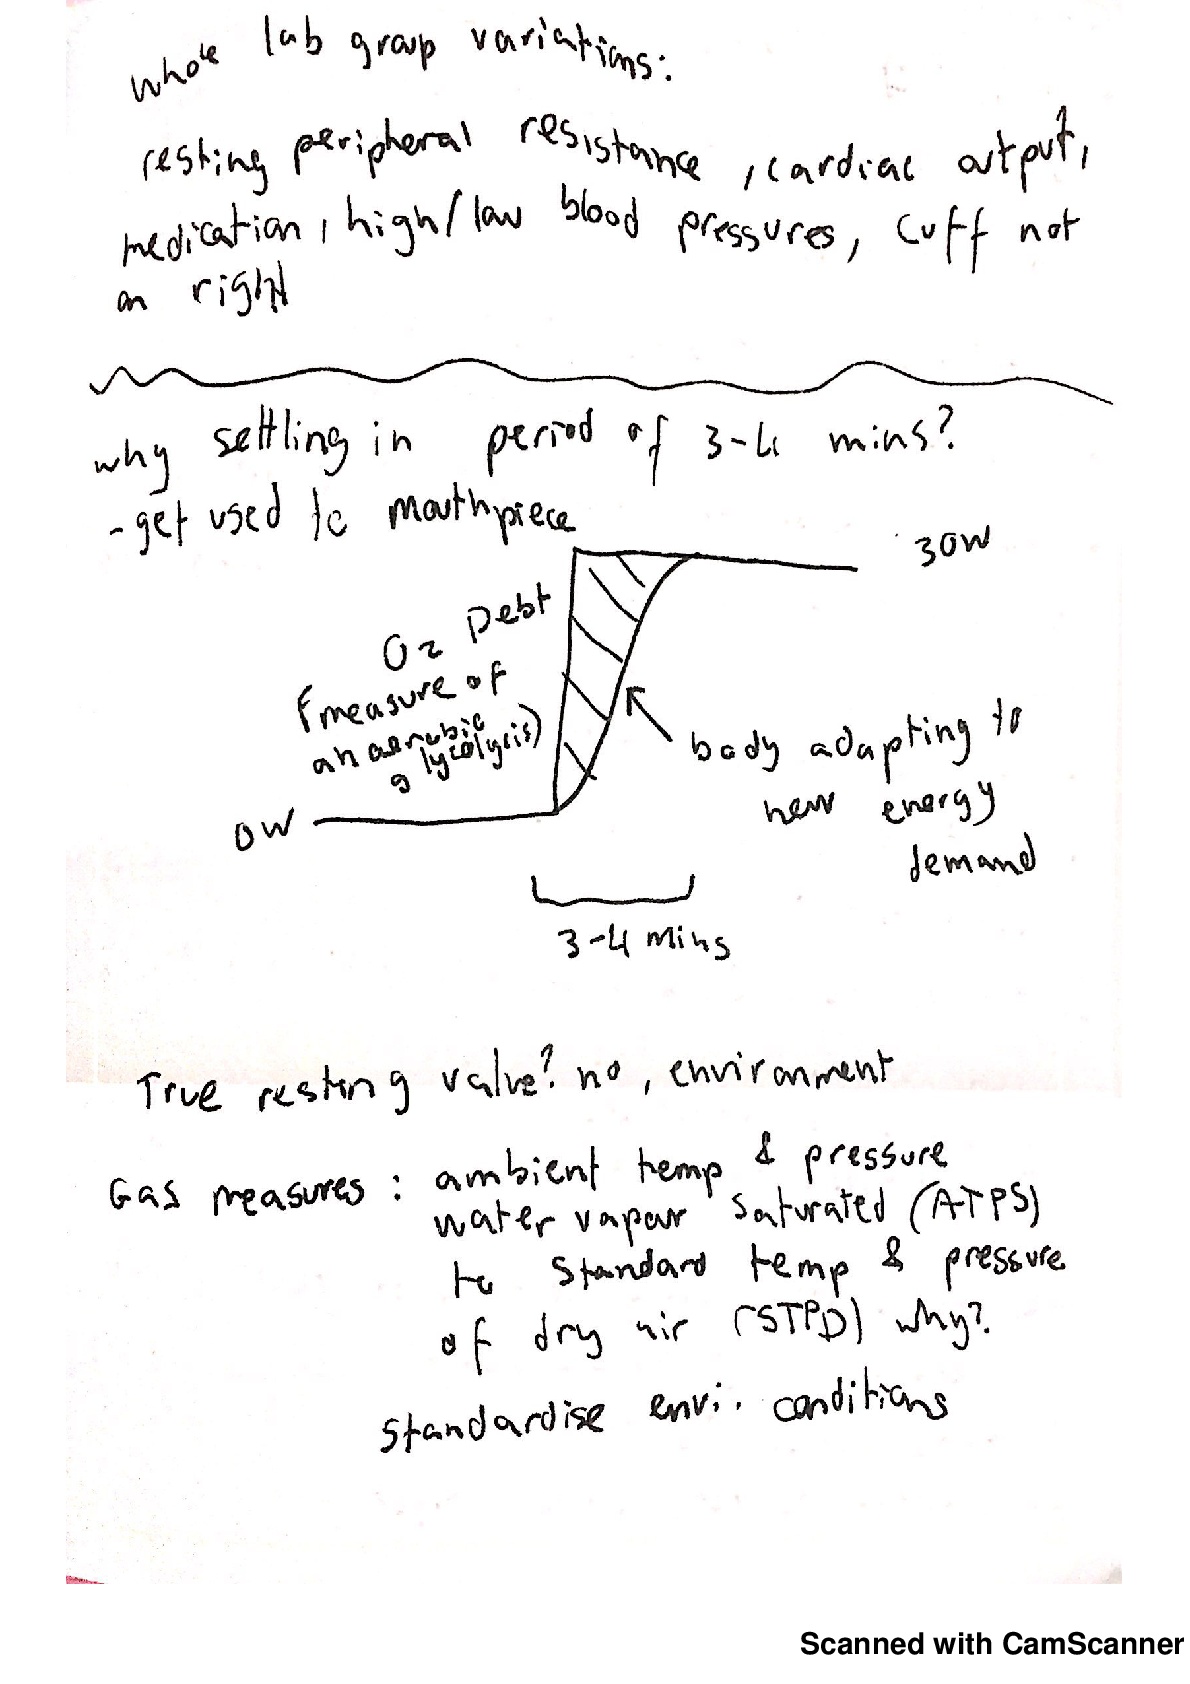 whole lab group variations:
resting peripheral resistance, cardiac output,
medication, high/low blood pressures, cuff not
on right
why settling in period of 3-4 mins?
- get used to mouthpiece
30W
O2 Debt
(measure of
anaerobic
glycolysis)
body adapting to
new energy
demand
0W
3-4 mins
True resting value? no, environment
Gas measures: ambient temp & pressure
water vapour saturated (ATPS)
to standard temp & pressure
of dry air (STPD) why?
standardise envi. conditions
Scanned with CamScanner